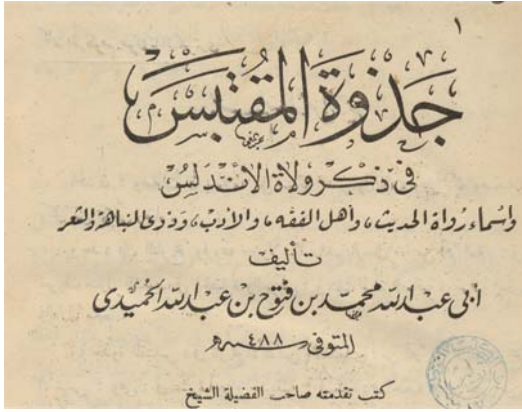 ١
جذوة المقتبس
في ذكر ولاة الأندلس
واسماء رواة الحديث، وأهل الفقه، والأدب، وذوي النباهة والشعر
تأليف
أبي عبد الله محمد بن فتوح بن عبد الله الحميدي
المتوفى ٤٨٨ هـ
كتب تقدمته صاحب الفضيلة الشيخ